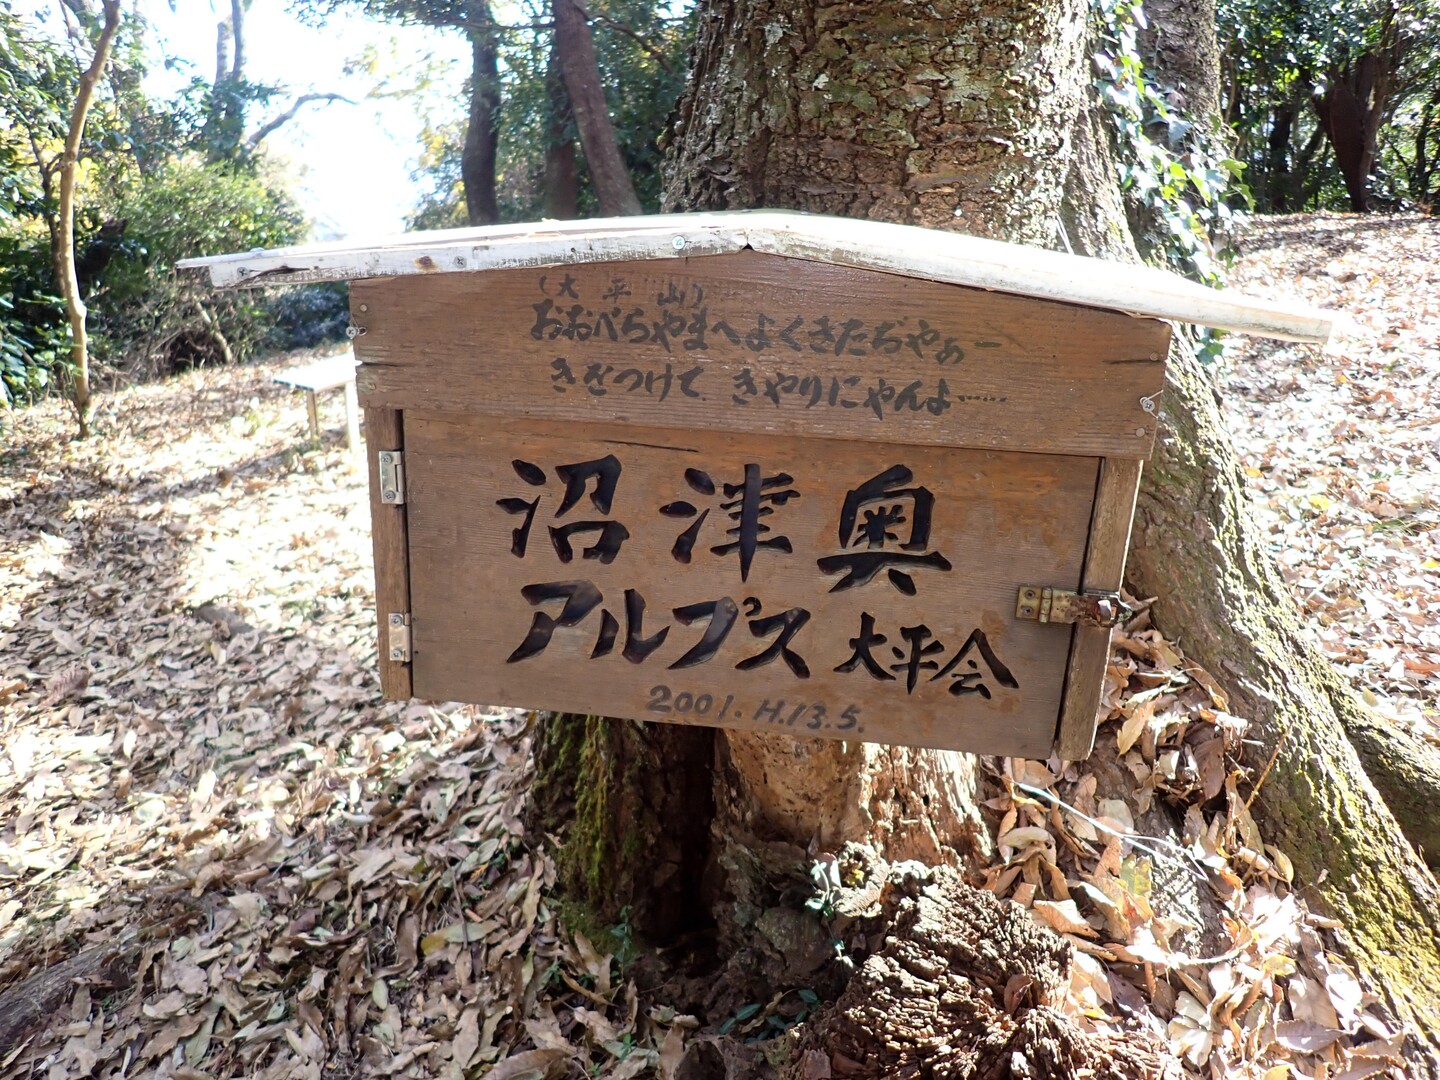 (大平山)
おおべらやまへよくきたぢやぁー
きをつけて、きやりにゃんよ……
沼津奥
アルプス 大平会
2001. H.13.5.